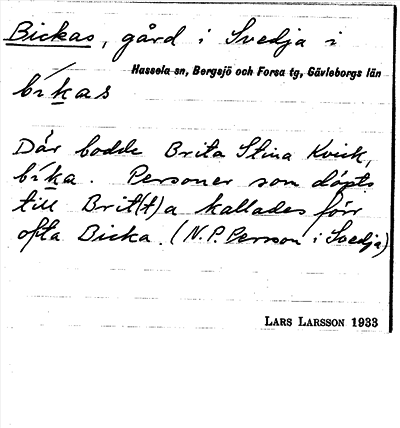 Bickas, gård i Svedja i
Hassela sn, Bergsjö och Forsa tg, Gävleborgs län
bíkas
Där bodde Brita Stina Kvick,
bíka. Personer som döpts
till Brit(t)a kallades förr
ofta Bicka. (N.P. Persson i Svedja)
LARS LARSSON 1933